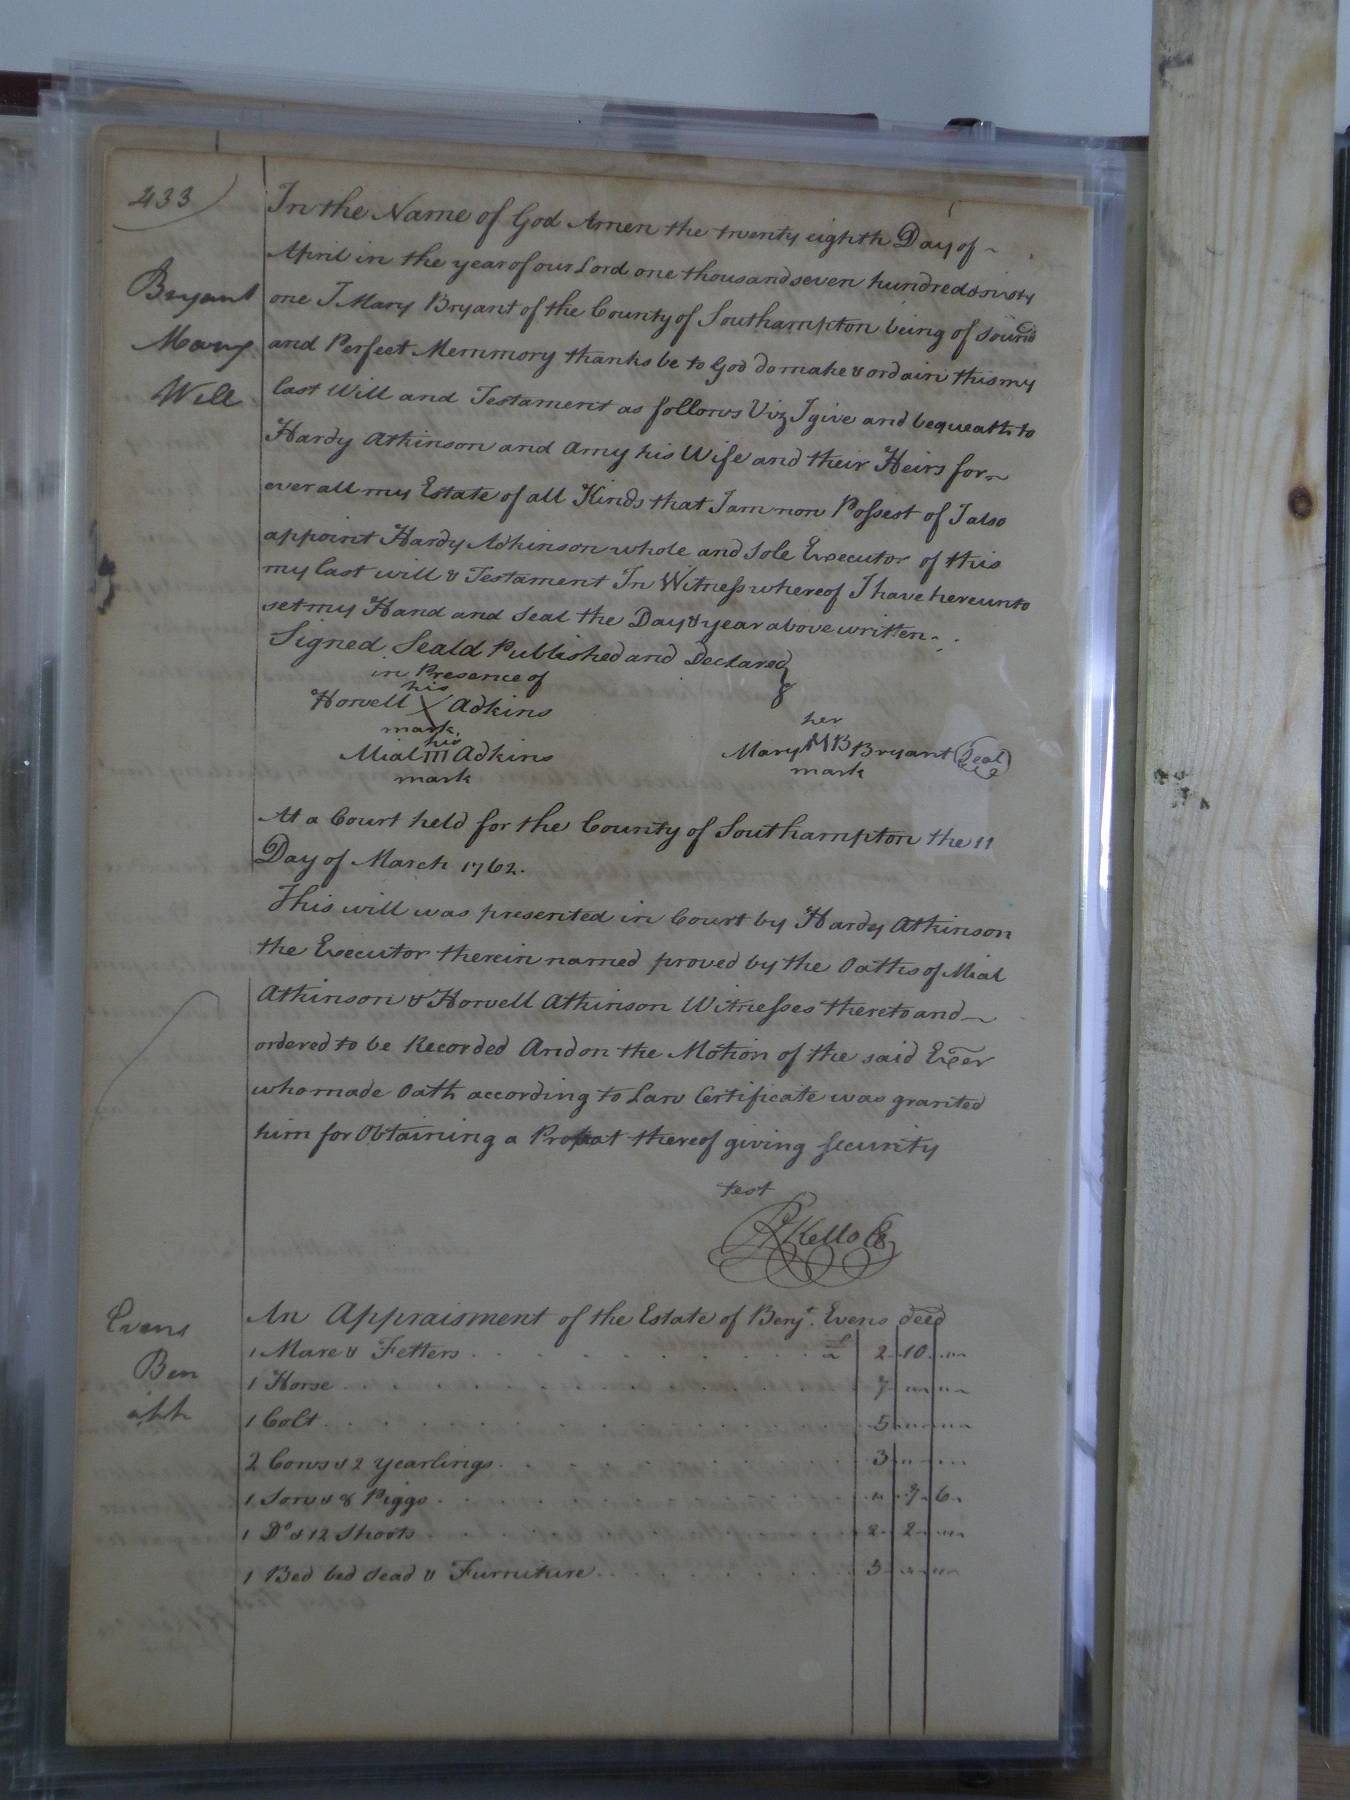 433
Bryant
Mary
Will
In the Name of God Amen the twenty eighth Day of
April in the year of our Lord one thousand seven hundred & sixty
one I Mary Bryant of the County of Southampton being of sound
and Perfect Memmory thanks be to God do make & ordain this my
last Will and Testament as follows Viz I give and bequeath to
Hardy Atkinson and Amy his Wife and their Heirs for
ever all my Estate of all Kinds that I am now Possest of I also
appoint Hardy Adkinson whole and Sole Executor of this
my last will & Testament In Witness whereof I have hereunto
set my Hand and Seal the Day & year above written.
Signed Seald Published and Declared
in Presence of
his
Howell X Adkins
mark.
his
Mial III Adkins
mark
her
Mary MB Bryant (Seal)
mark
At a Court held for the County of Southampton the 11
Day of March 1762.
This will was presented in Court by Hardy Atkinson
the Executor therein named proved by the Oaths of Mial
Atkinson & Howell Atkinson Witnesses thereto and
ordered to be Recorded And on the Motion of the said Exer
who made Oath according to Law Certificate was granted
him for Obtaining a Probat thereof giving security
test
R Kello Cl
Evens
Ben
An Appraisment of the Estate of Benjt. Evens decd
1 Mare & Fetters . . . £ 2 .. 10 ..
1 Horse . . . 7 ..
1 Colt . . . 5 ..
2 Cows & 2 yearlings . . . 3 ..
1 Sow & 8 Piggs . . . 7 . 6
1 Do & 12 Shoots . . . 2 .. 2 ..
1 Bed bed Stead & Furniture . . . 3 ..